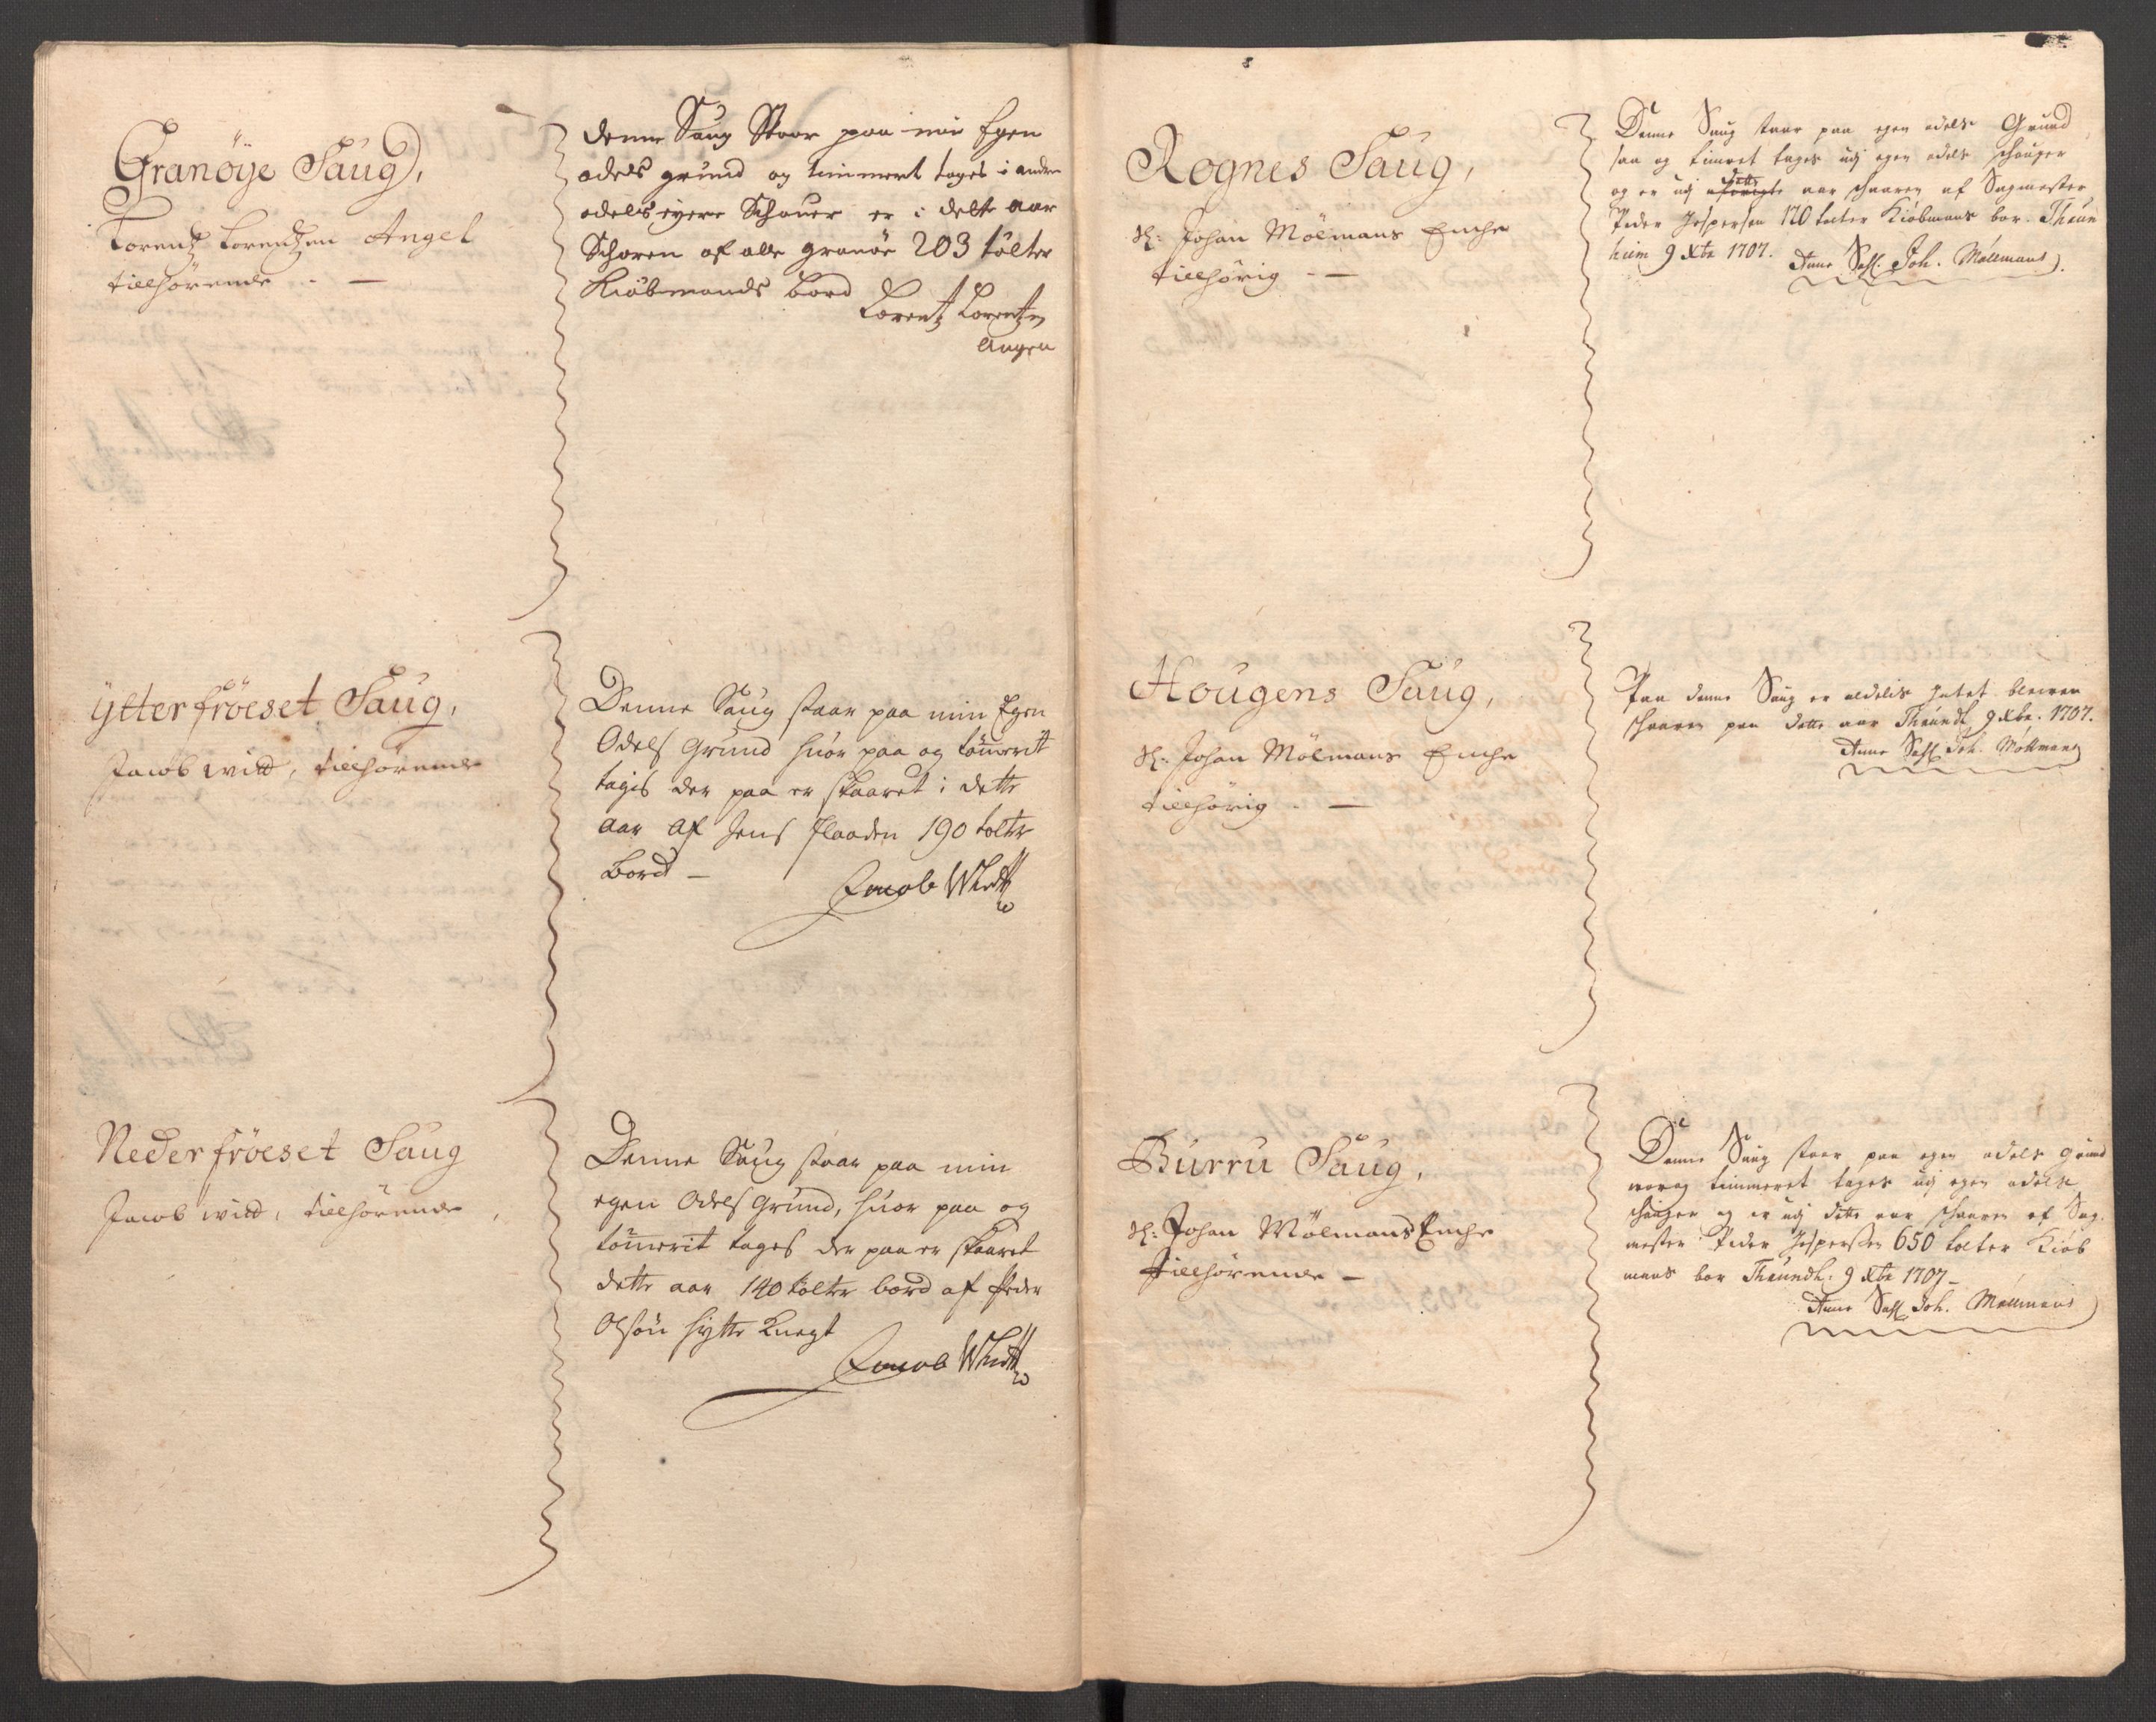 Granöÿe Saug,
Lorentz Lorentzen Angel
tillhörende . —
denne Saug Staar paa min Egen
odels grund og timmeret tages i andre
odels eyere Schouer er i dette aar
Schoren af alle granöe 203 tölter
Kiöbmands bord
Lorentz Lorentzen
Angen
Ÿtterfröeset Saug,
Jacob witd, tillhörende
Denne Saug staar paa min Egen
Odels Grund huor paa og tömerit
tagis der paa er skaaret i dette
Aar af Jens Flaaden 190 tolter
bord —
Jacob Whidtt
Nederfröeset Saug
Jacob witd, tillhörende
Denne Saug staar paa min
egen Odels Grund, huor paa og
tömerit tages der paa er skaaret
dette aar 140 tolter bord af Peder
Olsön hytte Knegt
Jacob Whidtt
Rognes Saug,
Sl: Johan Mölmans Enche
tillhörig . —
Denne Saug staar paa egen odels Grund
saa og timret tages udj egen odels schouger
og er udj dette aar schaaren af Sagmester
Peder Jespersen 170 tolter Kiöbmans bor. Thrún
hiem 9 Xbr 1707. Anne Sahl. Joh. Möllmans
Hougens Saug,
Sl: Johan Mölmans Enche
tillhörig . —
Paa denne Saug er aldelis Intet bleven
schaaren paa dette aar Thrúndh. 9 Xbr. 1707.
Anne Sahl Joh. Möllmans
Burru Saug,
Sl: Johan Mölmans Enche
tillhörende —
Denne Saug staar paa egen odels grund
timmeret tages udj egen odels
schouger og er udj dette aar schaaren af Sag-
mester Peder Jespersen 650 tolter Kiöb
mans bor Thrúndh: 9 Xbr 1707 —
Anne Sahl Joh. Möllmans